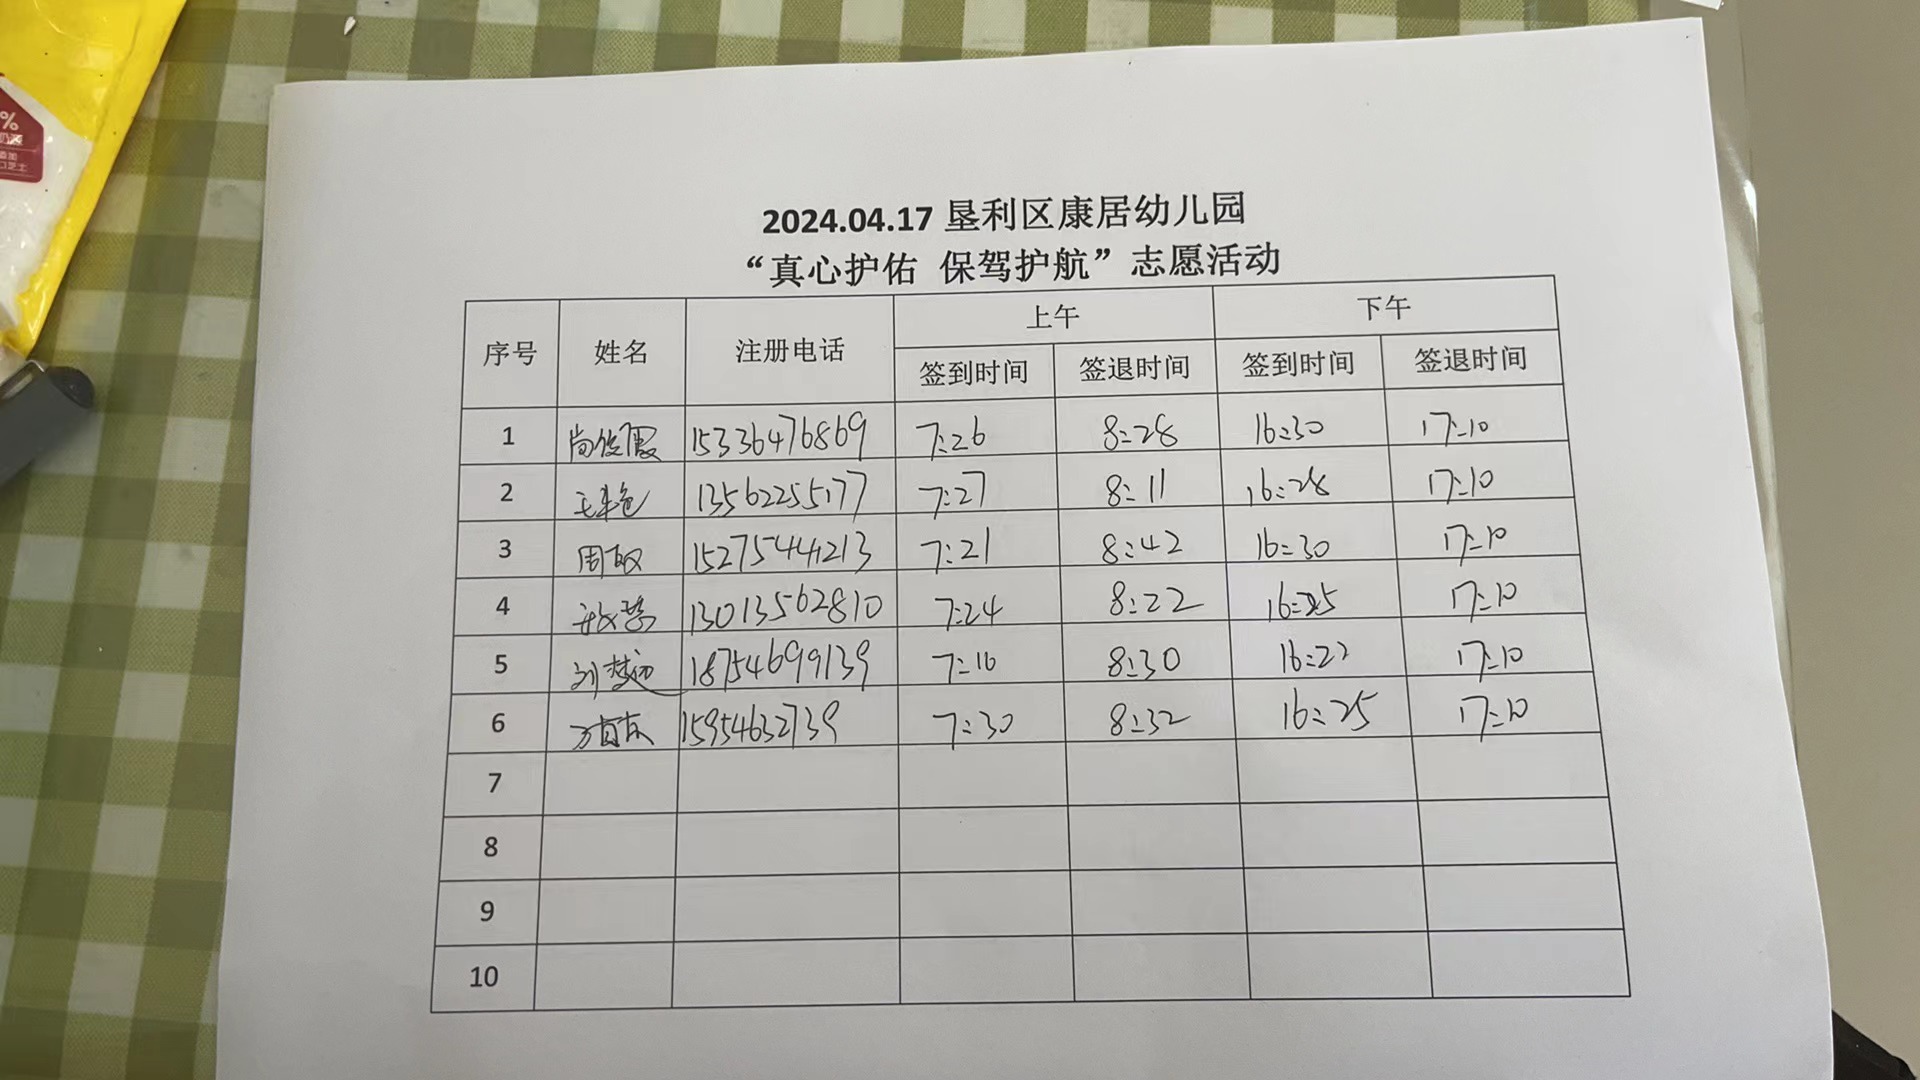 %
添加
口芝士
2024.04.17 垦利区康居幼儿园
“真心护佑 保驾护航”志愿活动
序号 姓名 注册电话 上午 下午
签到时间 签退时间 签到时间 签退时间
1 尚俊霞 15336476869 7:26 8:28 16:30 17:10
2 13562255177 7:27 8:11 16:28 17:10
3 周敏 15275444213 7:21 8:42 16:30 17:10
4 13013562810 7:24 8:22 16:25 17:10
5 刘 18754699139 7:16 8:30 16:22 17:10
6 15954632739 7:30 8:32 16:25 17:10
7
8
9
10